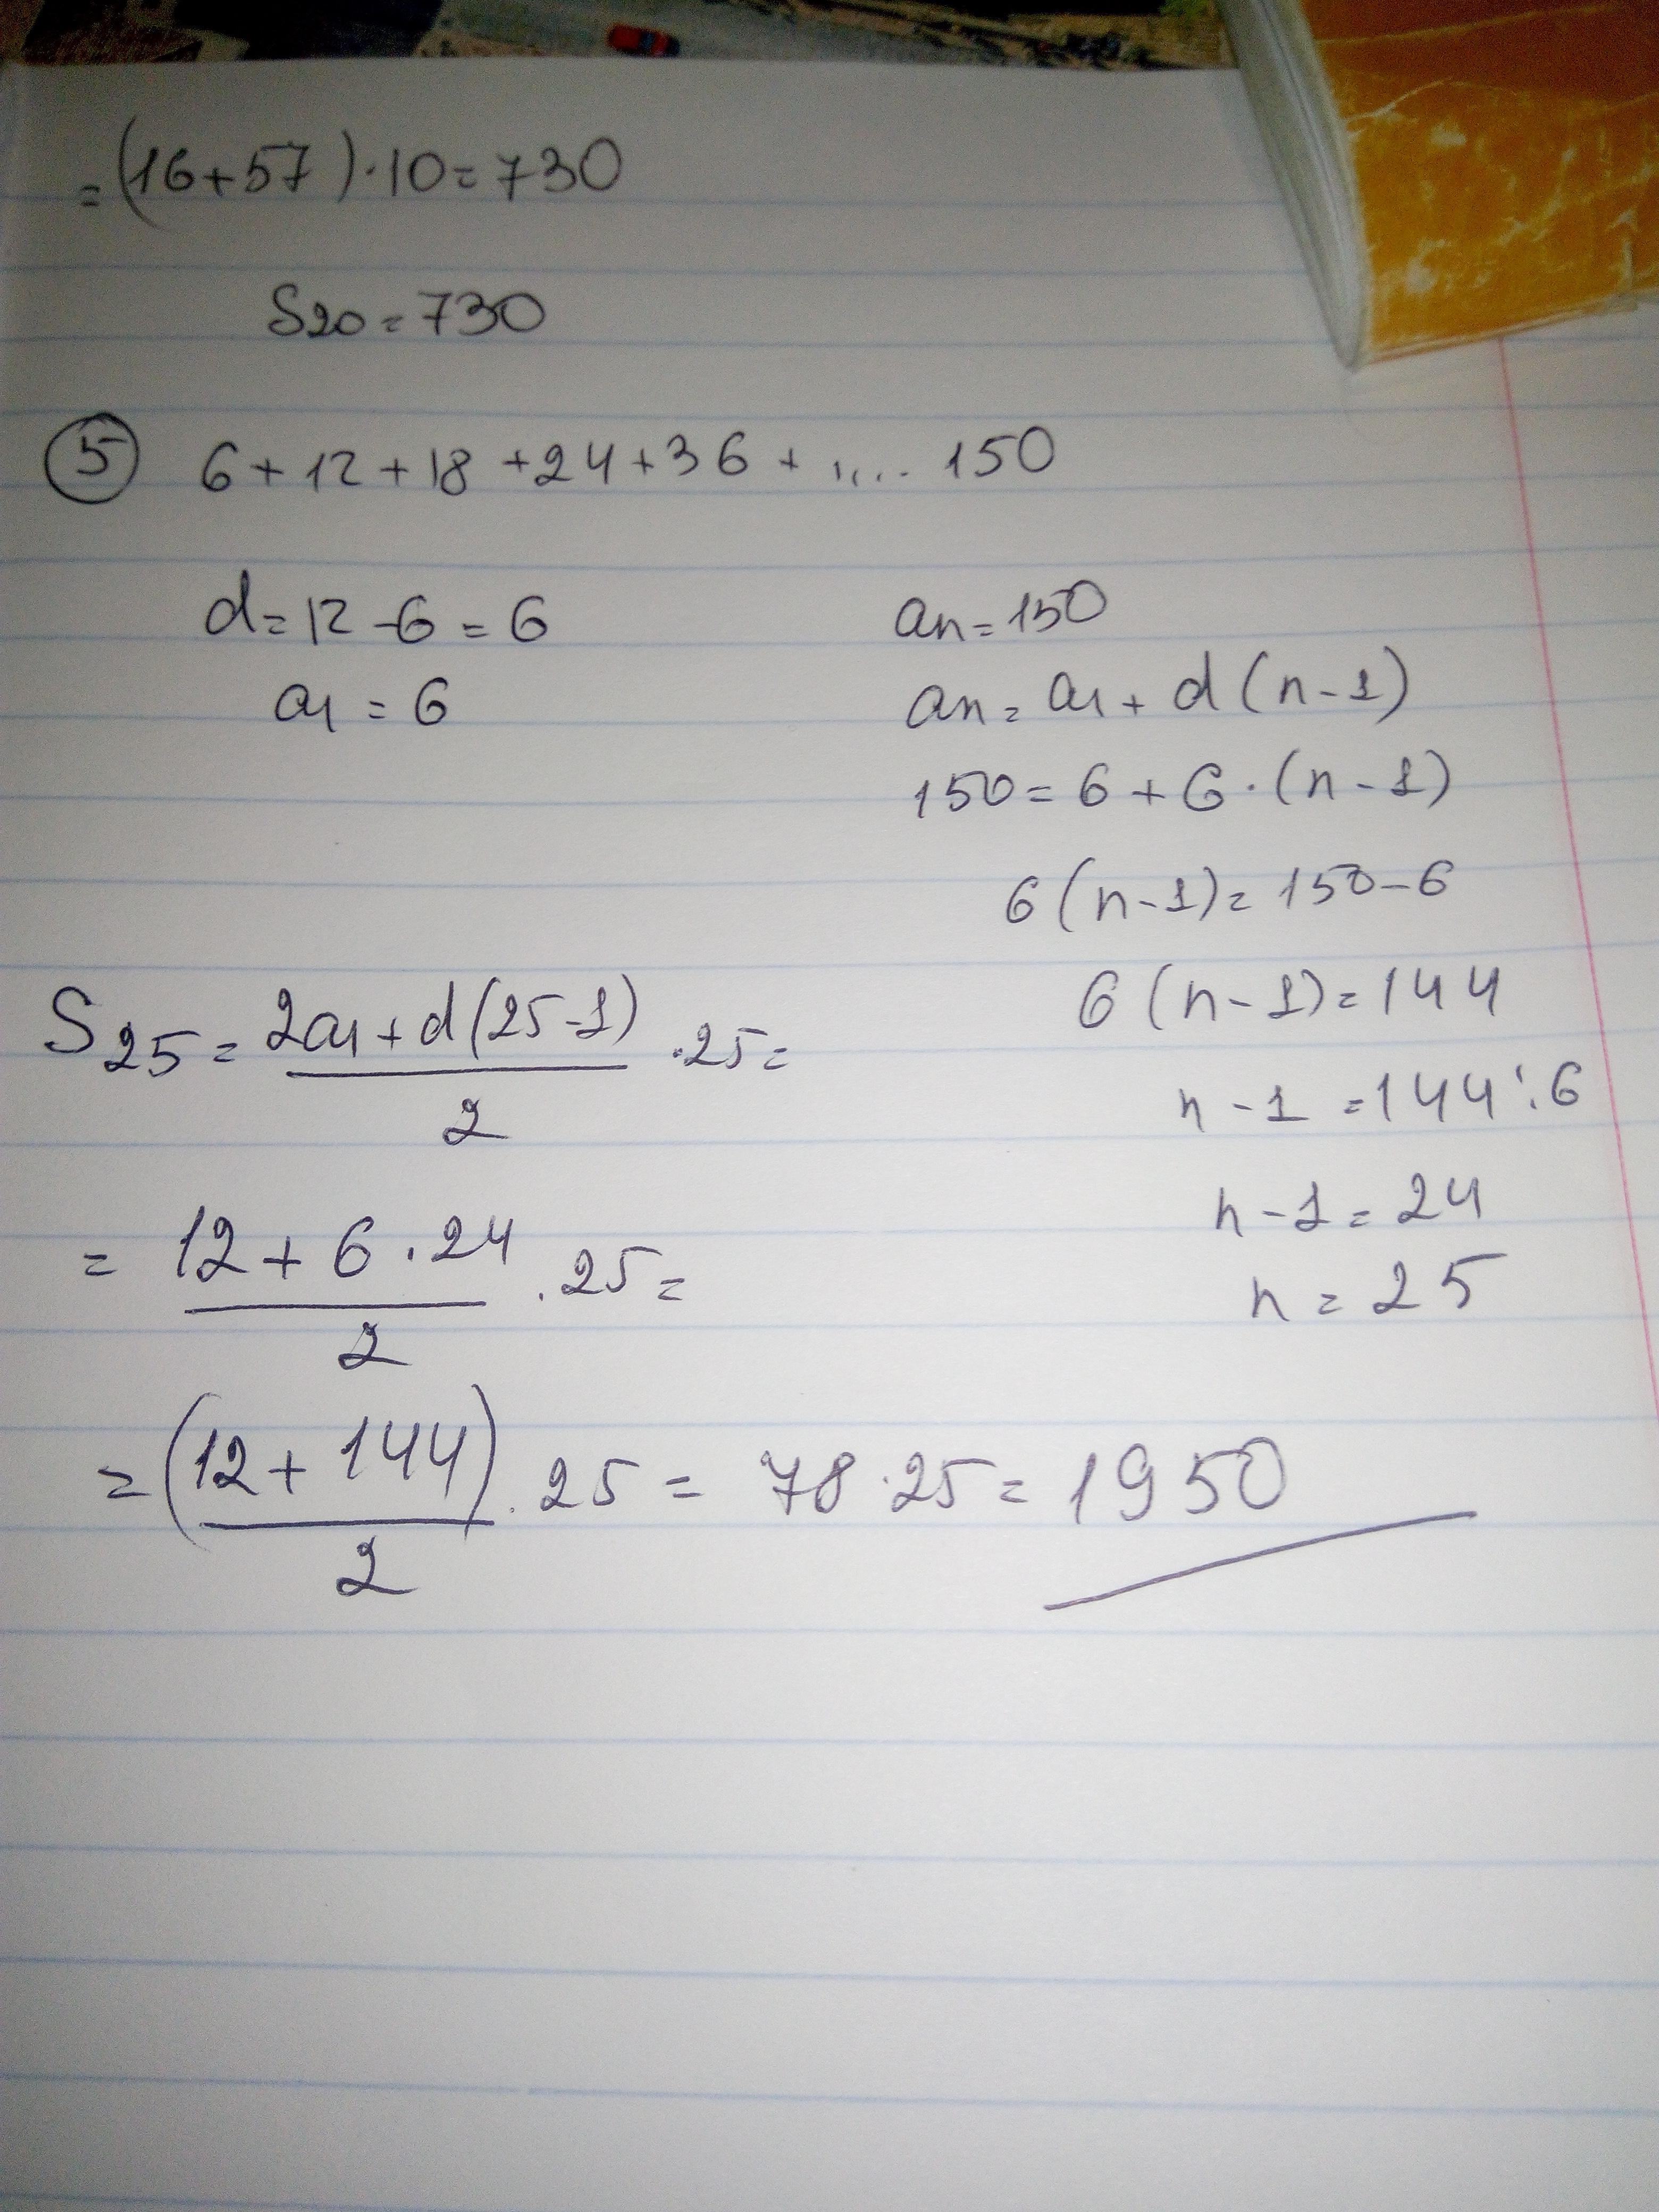 = (16+57)·10=730
S20=730
5 6+12+18+24+36+.... 150
d=12-6=6
a1=6
an=150
an=a1+d(n-1)
150=6+6·(n-1)
6(n-1)=150-6
6(n-1)=144
n-1=144:6
n-1=24
n=25
S25=2a1+d(25-1)/2 ·25=
=12+6·24/2 ·25=
=(12+144)/2 ·25=78·25=1950